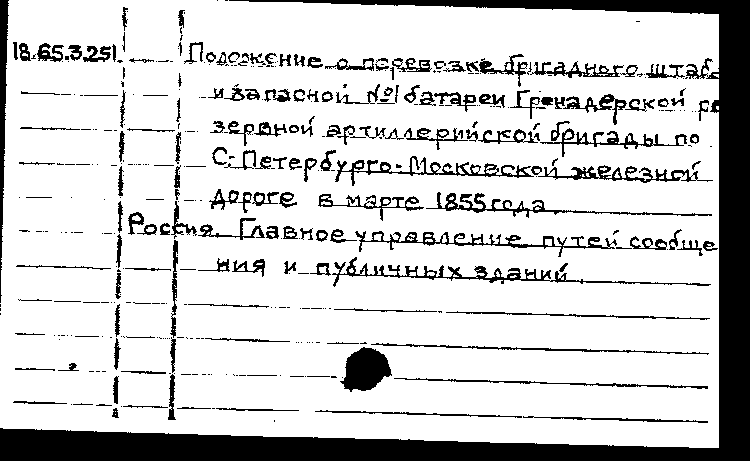 18.65.3.251. Положение о перевозке бригадного штаб
и запасной №1 батареи Гренадерской ре
зервной артиллерийской бригады по
С.-Петербурго-Московской железной
дороге в марте 1855 года.
Россия. Главное управление путей сообще
ния и публичных зданий.